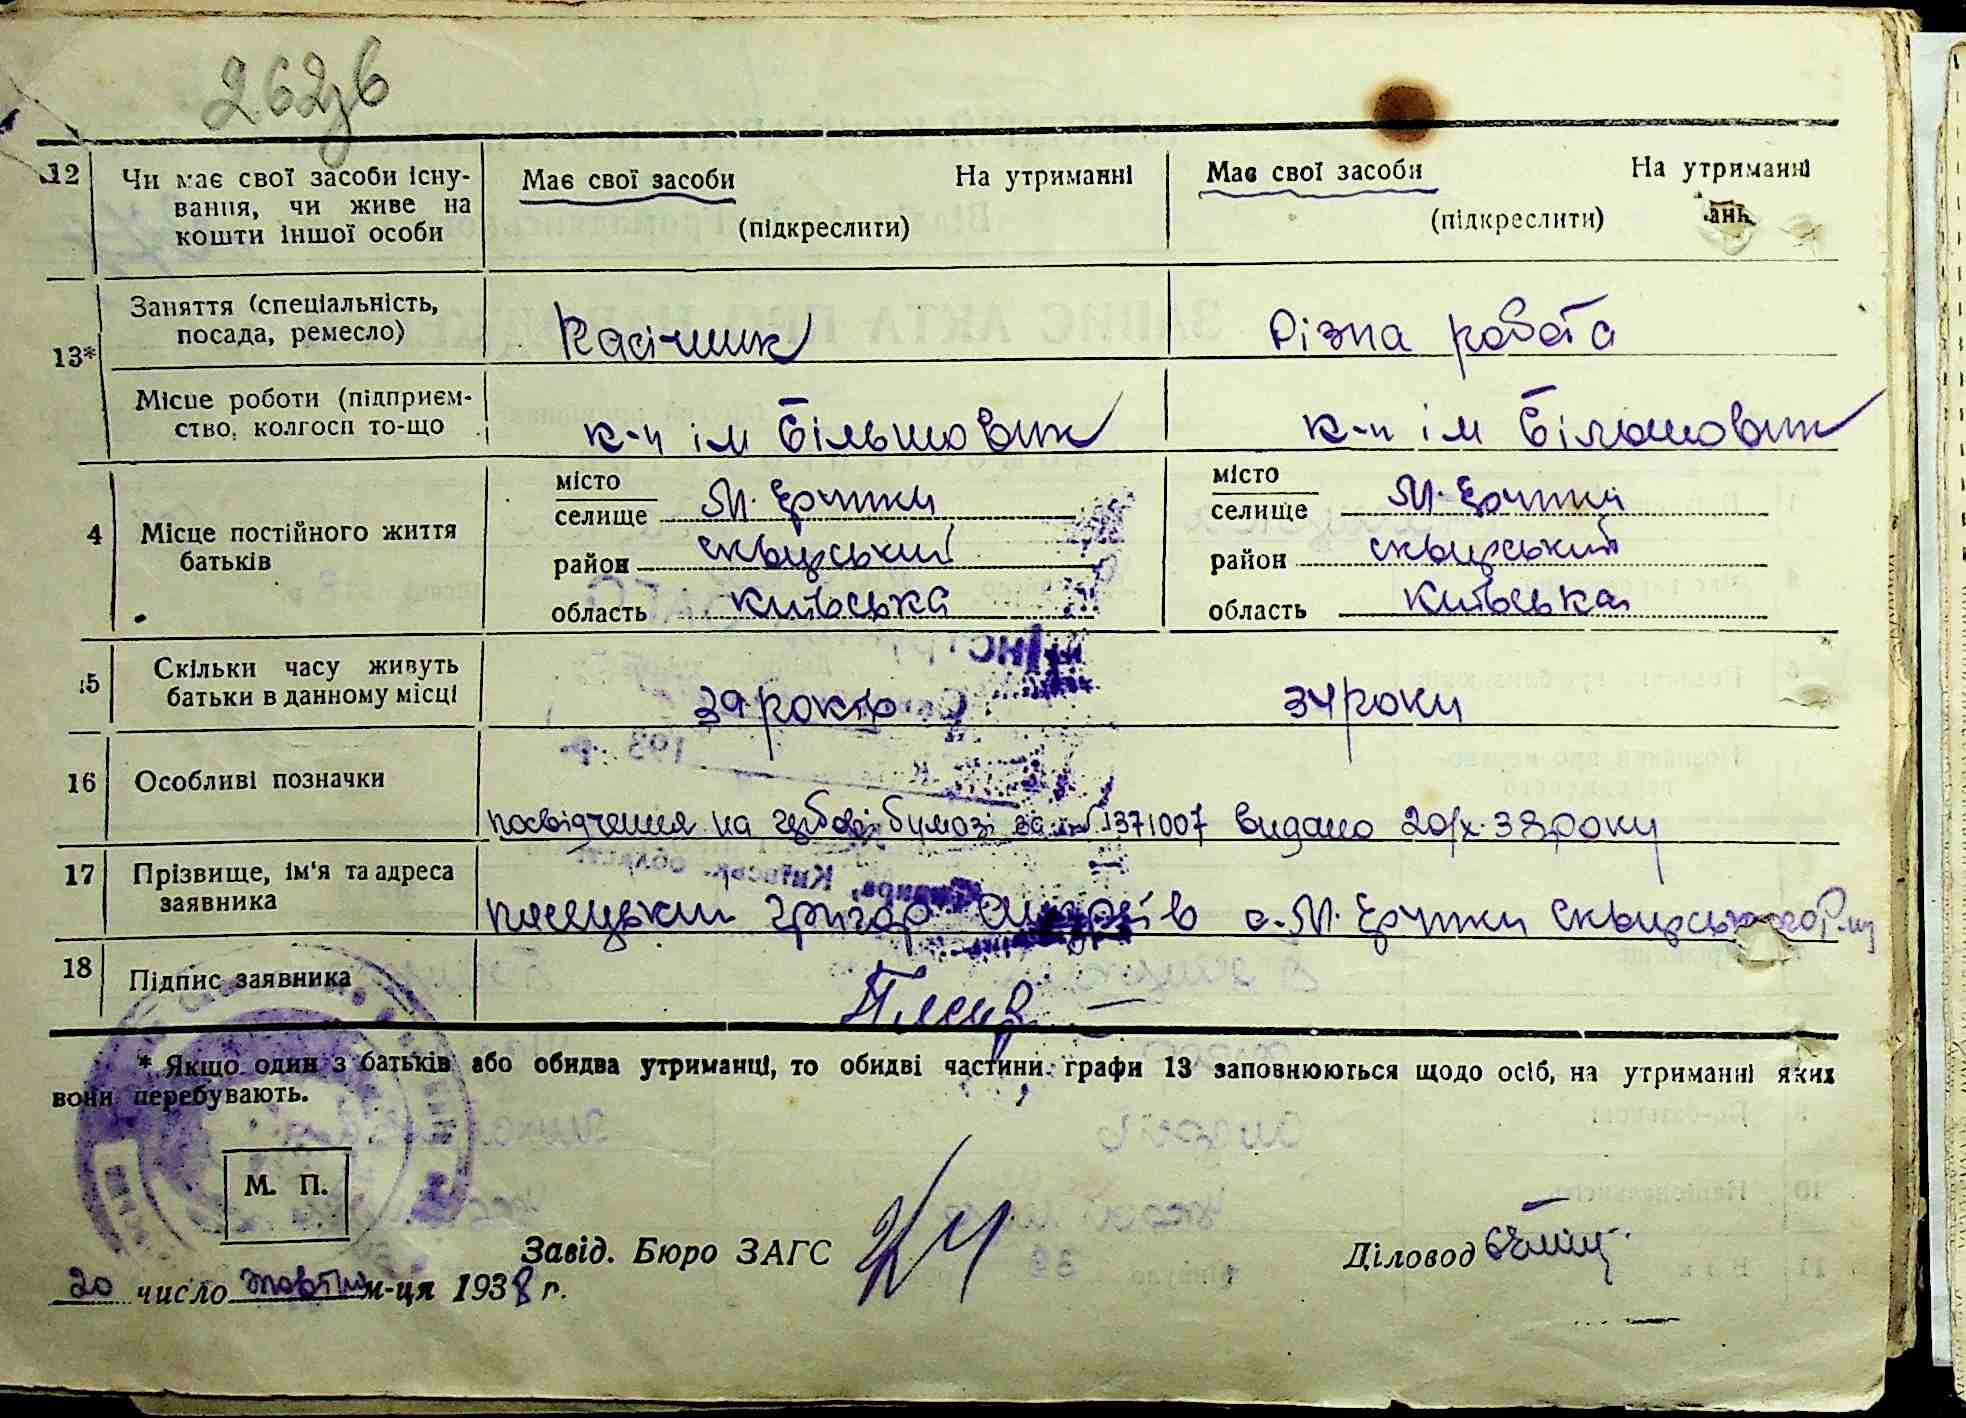 262зв
12
Чи має свої засоби існу-
вання, чи живе на
кошти іншої особи
Має свої засоби На утриманні
(підкреслити)
Має свої засоби На утриманні
(підкреслити)
13*
Заняття (спеціальність,
посада, ремесло)
Касічник
Різна робота
Місце роботи (підприєм-
ство, колгосп то-що
к-п ім Більшовик
к-п ім Більшовик
4
Місце постійного життя
батьків
місто
селище М. Єрчики
район сквирський
область київська
місто
селище М. Єрчики
район сквирський
область київська
5
Скільки часу живуть
батьки в данному місці
39 років
34 роки
16
Особливі позначки
посвідчення на гербові бумозі за № 371007 видано 20/х-38 року
17
Прізвище, ім'я та адреса
заявника
Григор с. М. Єрчики сквирського р-ну
18
Підпис заявника
* Якщо один з батьків або обидва утриманці, то обидві частини графи 13 заповнюються щодо осіб, на утриманні яких
вони перебувають.
М. П.
Завід. Бюро ЗАГС
Діловод
20 число жовтня м-ця 1938 г.